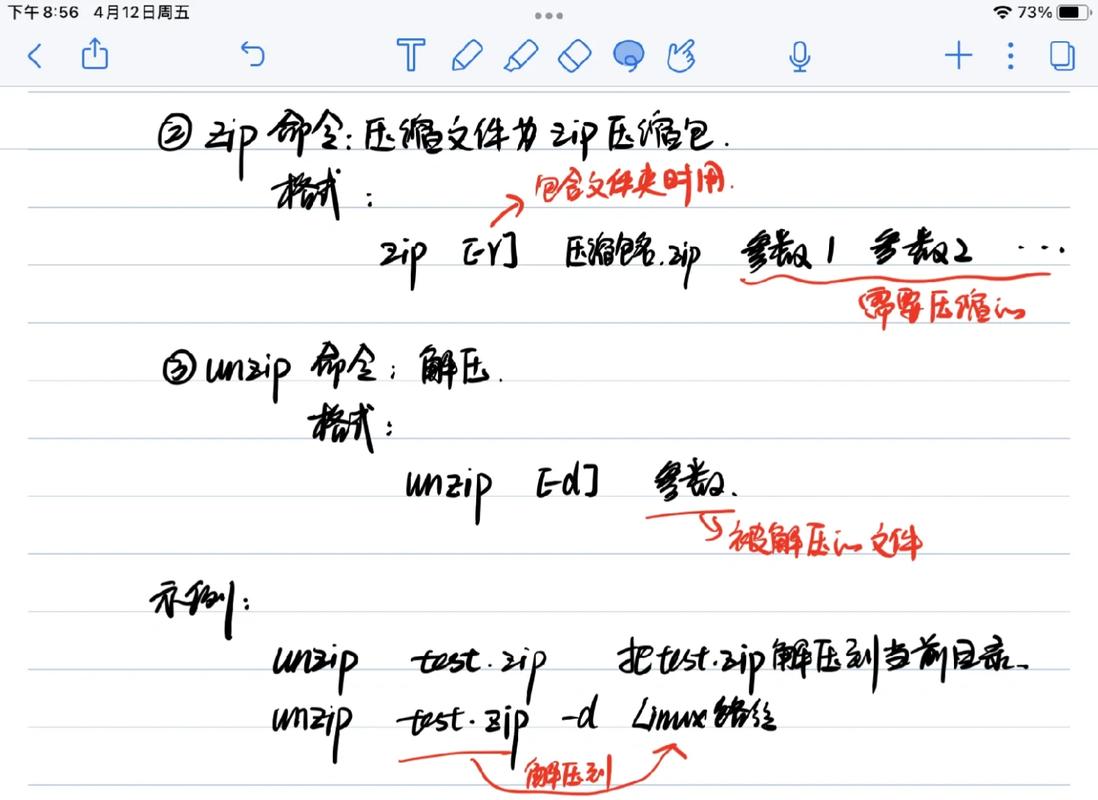 下午8:56 4月12日周五
73%
② zip 命令:压缩文件为 zip 压缩包.
格式:
包含文件夹时用.
zip [-r] 压缩包名.zip 参数1 参数2 ...
需要压缩的
③ unzip 命令: 解压.
格式:
unzip [-d] 参数.
被解压的文件
示例:
unzip test.zip 把test.zip解压到当前目录.
unzip test.zip -d Linux路径
解压到